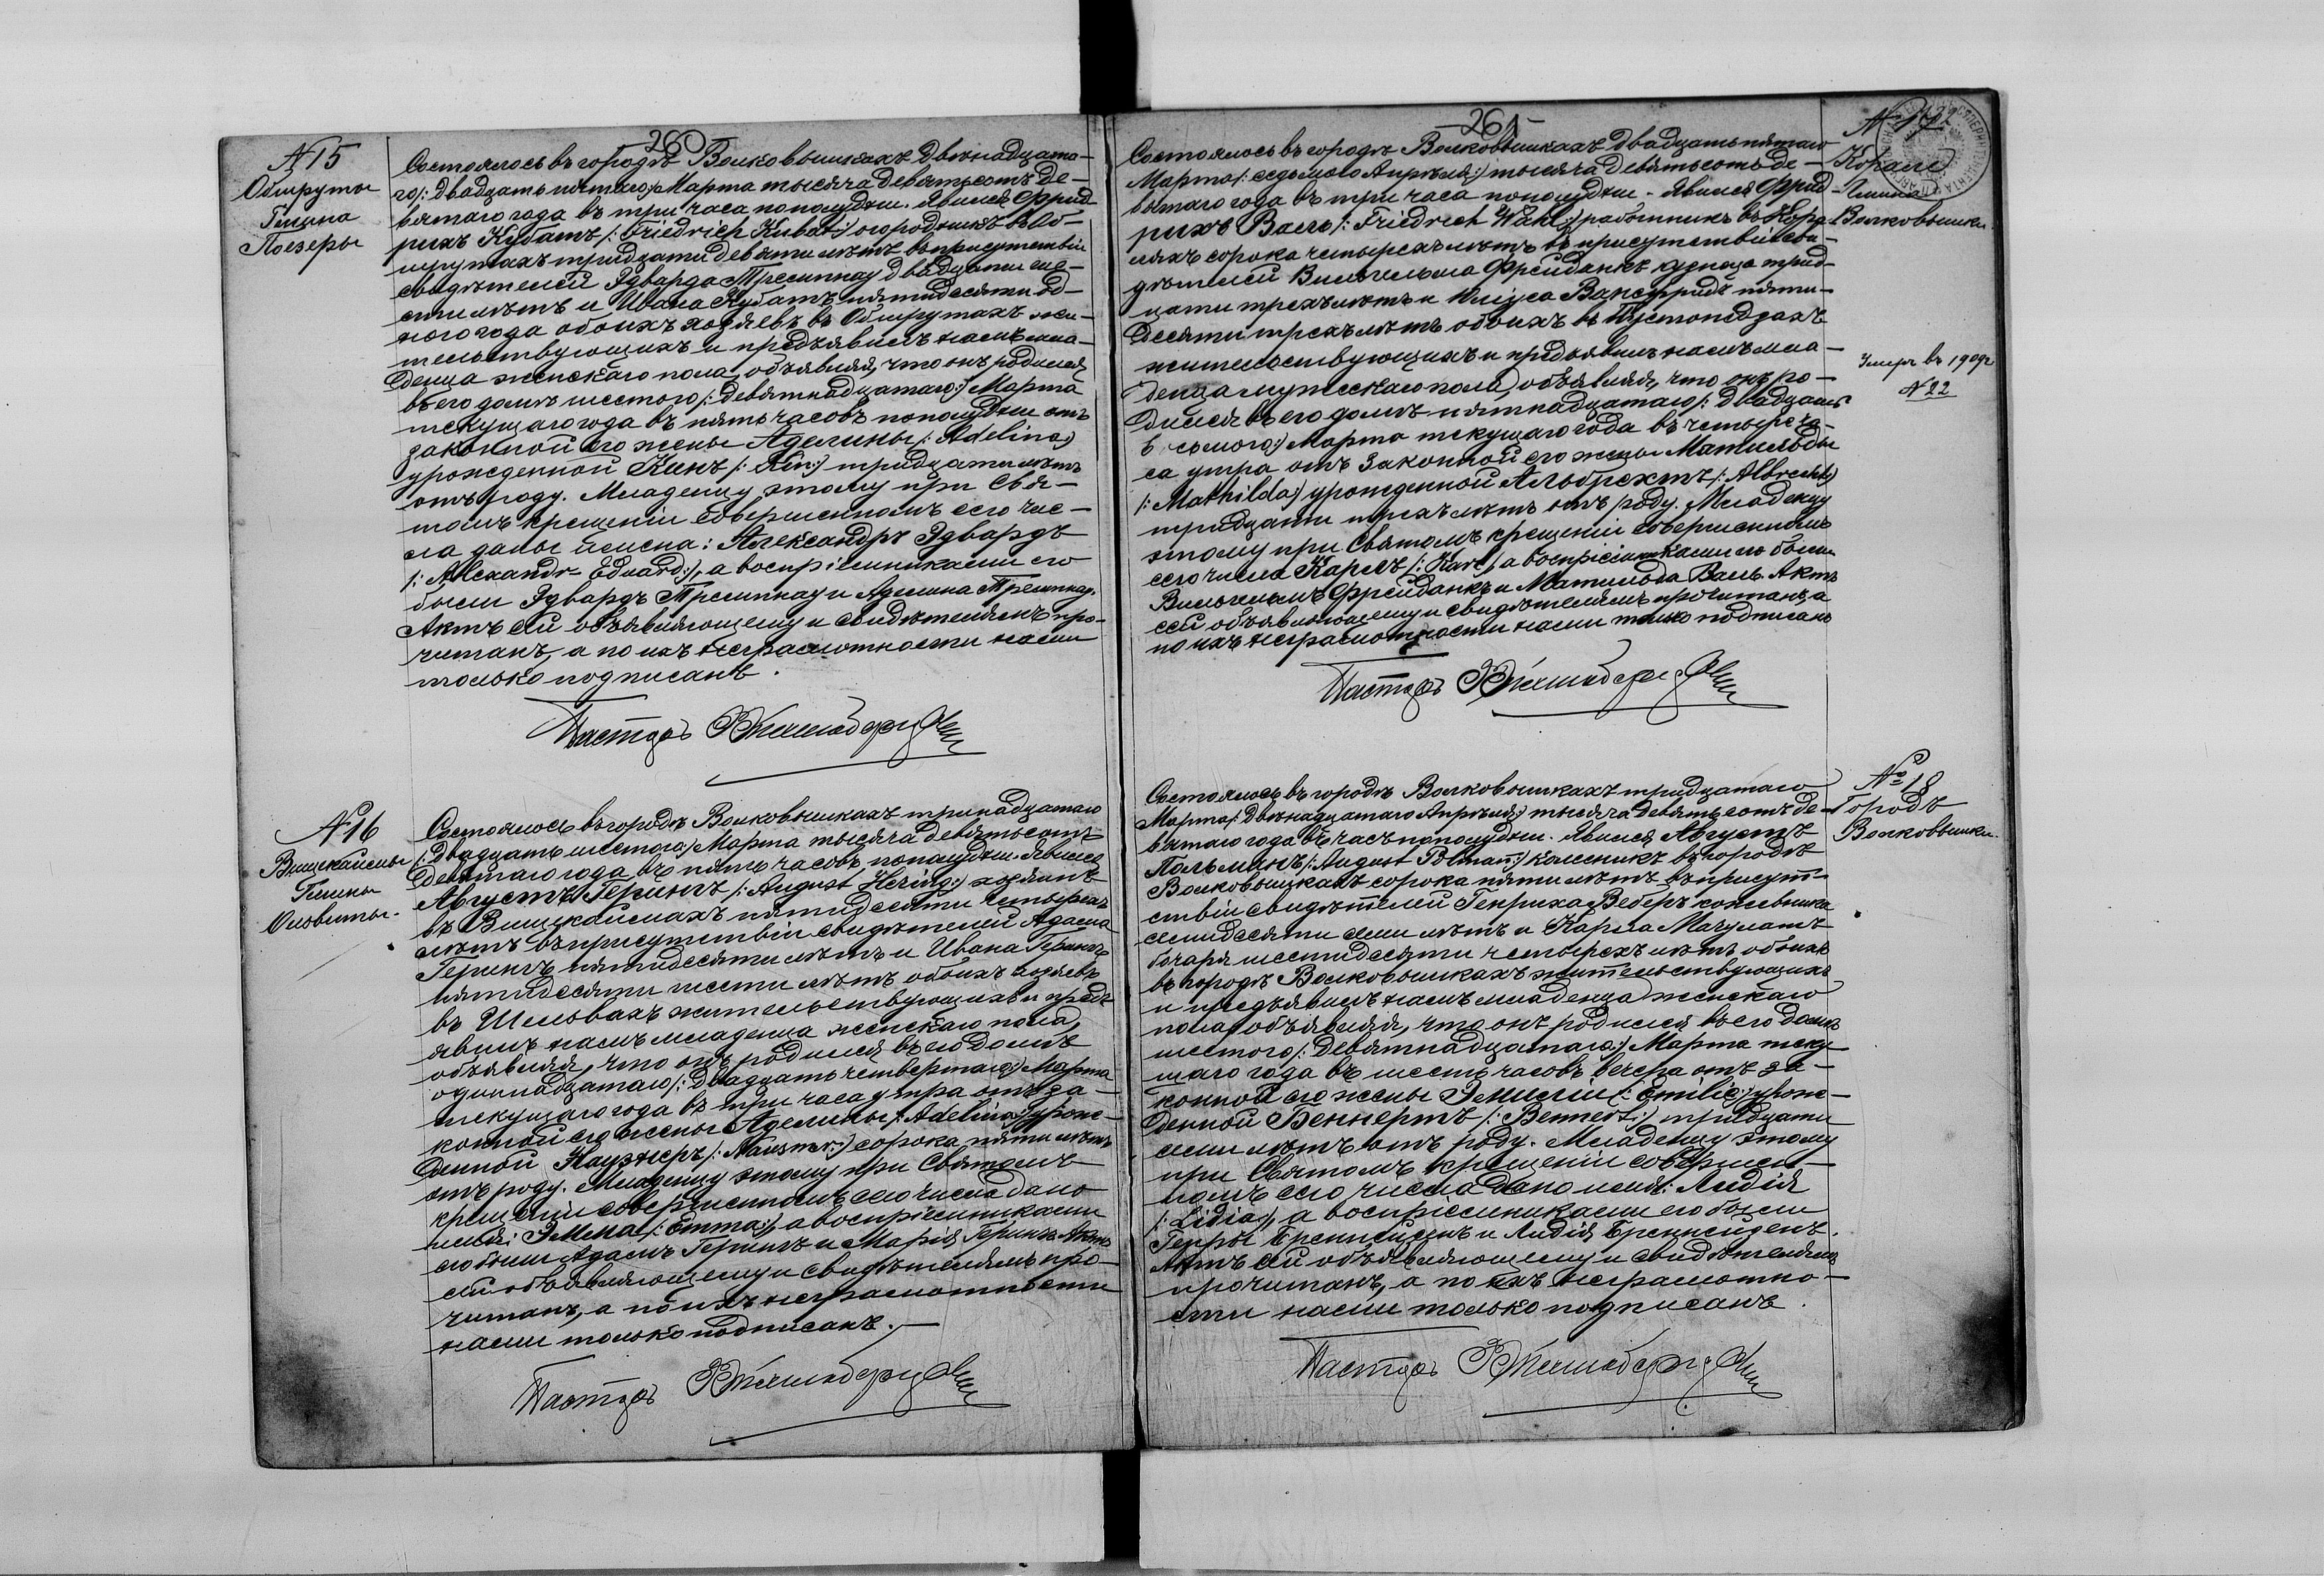 260
№ 15
Обшруты
Гмина
Поезеры
Состоялось въ городѣ Волковышкахъ двѣнадцата-
го /: двадцать пятаго :/ Марта тысяча девятьсотъ де-
вятаго года въ три часа пополудни. Явился Фрид-
рихъ Кубатъ /: Friedrich Kubat :/ огородникъ въ Об-
шрутахъ тридцати девяти лѣтъ въ присутствіи
свидѣтелей Эдварда Тремпнау двадцати ше-
сти лѣтъ и Ивана Кубатъ пятидесяти од-
ного года обоихъ хозяевъ въ Обшрутахъ жи-
тельствующихъ и предъявилъ намъ мла-
денца женскаго пола, объявляя, что онъ родился
въ его домѣ шестого /: девятнадцатаго :/ Марта
текущаго года въ пять часовъ пополудни отъ
законной его жены Аделины /: Adelina :/
урожденной Кинъ /: Kin :/ тридцати лѣтъ
отъ роду. Младенцу этому при Свя-
томъ крещеніи совершенномъ сего чис-
ла даны имена: Александръ Эдвардъ
/: Alexandr Eduard :/, а воспріемниками его
были Эдвардъ Тремпнау и Аделина Тремпнау.
Актъ сей объявляющему и свидѣтелямъ про-
читанъ, а по ихъ неграмотности нами
только подписанъ.
Пасторъ
№ 16
Вищкайсмы
Гмины
Оловиты.
Состоялось въ городѣ Волковышкахъ тринадцатаго
/: двадцать шестого :/ Марта тысяча девятьсотъ
девятаго года въ пять часовъ пополудни. Явился
Августъ Герингъ /: August Hering :/ хозяинъ
въ Вищкайсмахъ пятидесяти четырехъ
лѣтъ въ присутствіи свидѣтелей Адама
Герингъ пятидесяти лѣтъ и Ивана Герингъ
пятидесяти шести лѣтъ обоихъ хозяевъ
въ Шельвахъ жительствующихъ и предъ-
явилъ намъ младенца женскаго пола,
объявляя, что онъ родился въ его домѣ
одиннадцатаго /: двадцать четвертаго :/ Марта
текущаго года въ три часа утра отъ за-
конной его жены Аделины /: Adelina :/ урож-
денной Наузнеръ /: Nausner :/ сорока пяти лѣтъ
отъ роду. Младенцу этому при Святомъ
крещеніи совершенномъ сего числа дано
имя: Эмма /: Emma :/, а воспріемниками
его были Адамъ Герингъ и Марія Герингъ. Актъ
сей объявляющему и свидѣтелямъ про-
читанъ, а по ихъ неграмотности
нами только подписанъ.
Пасторъ
-261-
Состоялось въ городѣ Волковышкахъ двадцать пятаго
Марта /: седьмого Апрѣля :/ тысяча девятьсотъ де-
вятаго года въ три часа пополудни. Явился Фрид-
рихъ Валь /: Friedrich Wahl :/ работникъ въ Кора-
ляхъ сорока четырехъ лѣтъ въ присутствіи сви-
дѣтелей Вильгельма Фрейданкъ кузнеца трид-
цати трехъ лѣтъ и Юліуса Вансфридъ пяти-
десяти трехъ лѣтъ обоихъ въ Пустопедзахъ
жительствующихъ и предъявилъ намъ мла-
денца мужескаго пола, объявляя, что онъ ро-
дился въ его домѣ пятнадцатаго /: двадцать
восьмого :/ Марта текущаго года въ четыре ча-
са утра отъ законной его жены Матильды
/: Mathilda :/ урожденной Альбрехтъ /: Albrecht :/
тридцати трехъ лѣтъ отъ роду. Младенцу
этому при Святомъ крещеніи совершенномъ
сего числа Карлъ /: Karl :/, а воспріемниками его были
Вильгельмъ Фрейданкъ и Матильда Валь. Актъ
сей объявляющему и свидѣтелямъ прочитанъ, а
по ихъ неграмотности нами только подписанъ
Пасторъ
№ 17
Корале
Гмина
Волковышки
Умеръ въ 1909 г
№ 22
Состоялось въ городѣ Волковышкахъ тридцатаго
Марта /: двѣнадцатаго Апрѣля :/ тысяча девятьсотъ де-
вятаго года въ часъ пополудни. Явился Августъ
Польманъ /: August Polman :/ каменщикъ въ городѣ
Волковышкахъ сорока пяти лѣтъ въ присут-
ствіи свидѣтелей Генриха Веберъ кожевника
семидесяти семи лѣтъ и Карла Мачулатъ
бочаря шестидесяти четырехъ лѣтъ обоихъ
въ городѣ Волковышкахъ жительствующихъ
и предъявилъ намъ младенца женскаго
пола объявляя, что онъ родился въ его домѣ
шестого /: девятнадцатаго :/ Марта теку-
щаго года въ шесть часовъ вечера отъ за-
конной его жены Эмиліи /: Emilie :/ урож-
денной Беннертъ /: Bennert :/ тридцати
семи лѣтъ отъ роду. Младенцу этому
при Святомъ крещеніи совершен-
номъ сего числа дано имя: Лидія
/: Lidia :/, а воспріемниками его были
Генрихъ и Лидія
Актъ сей объявляющему и свидѣтелямъ
прочитанъ, а по ихъ неграмотно-
сти нами только подписанъ.
Пасторъ
№ 18
Городъ
Волковышки